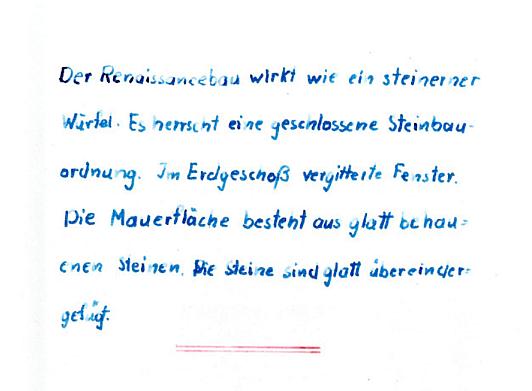 Der Renaissancebau wirkt wie ein steinerner
Würfel. Es herrscht eine geschlossene Steinbau-
ordnung. Im Erdgeschoß vergitterte Fenster.
Die Mauerfläche besteht aus glatt behau=
enen Steinen. Die Steine sind glatt übereinder=
gefügt.